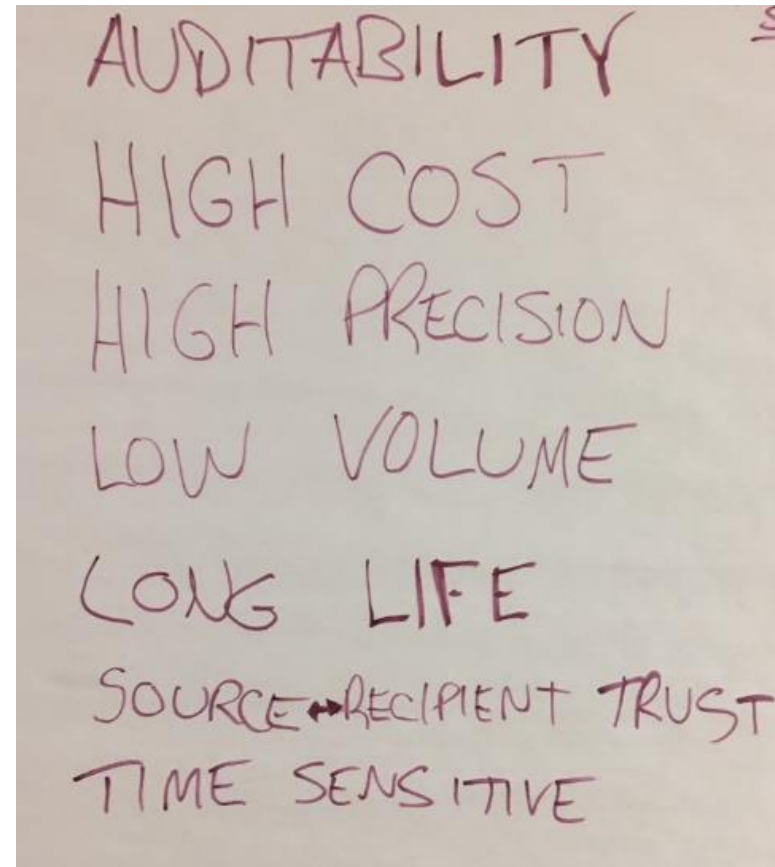 AUDITABILITY
HIGH COST
HIGH PRECISION
LOW VOLUME
LONG LIFE
SOURCE↔RECIPIENT TRUST
TIME SENSITIVE